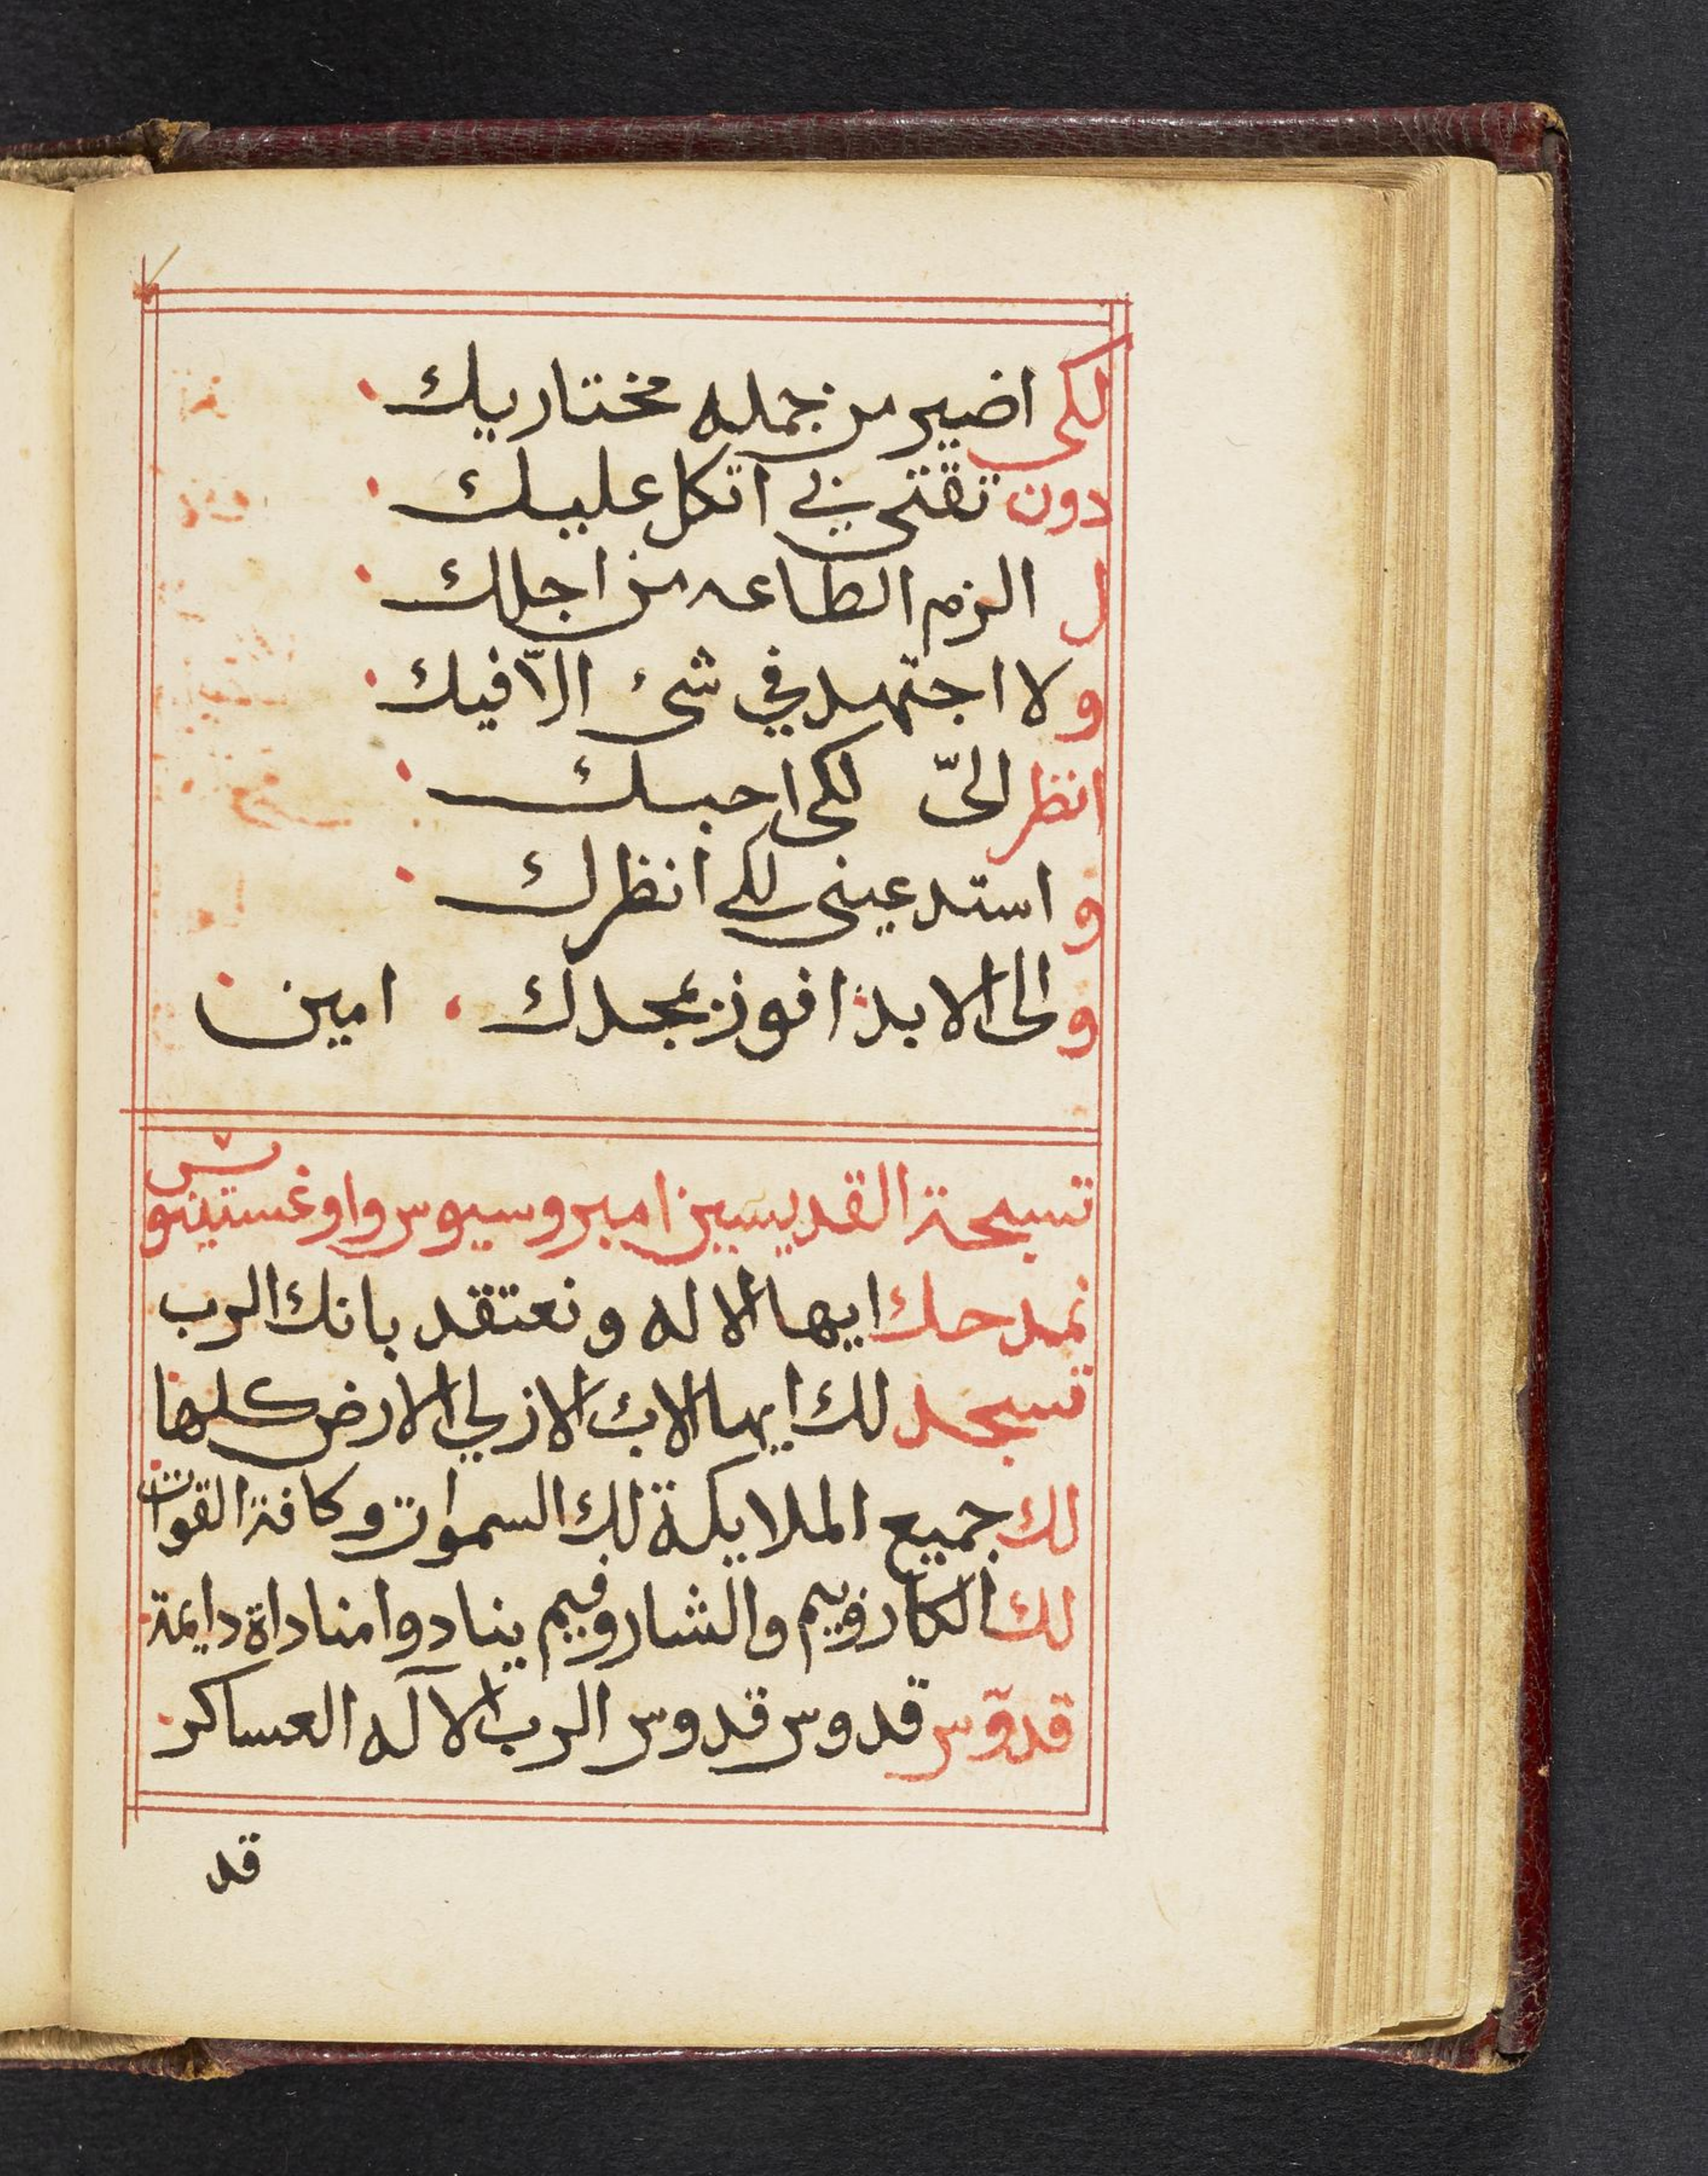 لكى اضير من جمله مختاريك
دون تقتى في اتكل عليك
ل الزم الطاعه من اجلك
ولا اجتهد في شئ الّا فيك
انظر الىّ لكى احبك
واستدعينى لكى انظرك
والى الابد افوز بمجدك امين
تسبحة القديسين امبروسيوس واوغستينوس
نمدحك ايها الاله ونعتقد بانك الرب
تسجد لك ايها الاب الازلي الارض كلها
لك جميع الملايكة لك السموات وكافة القوات
لك الكاروبيم والشاروفيم ينادوا مناداة دايمة
قدوّس قدوس قدوس الرب الآله العساكر
قد